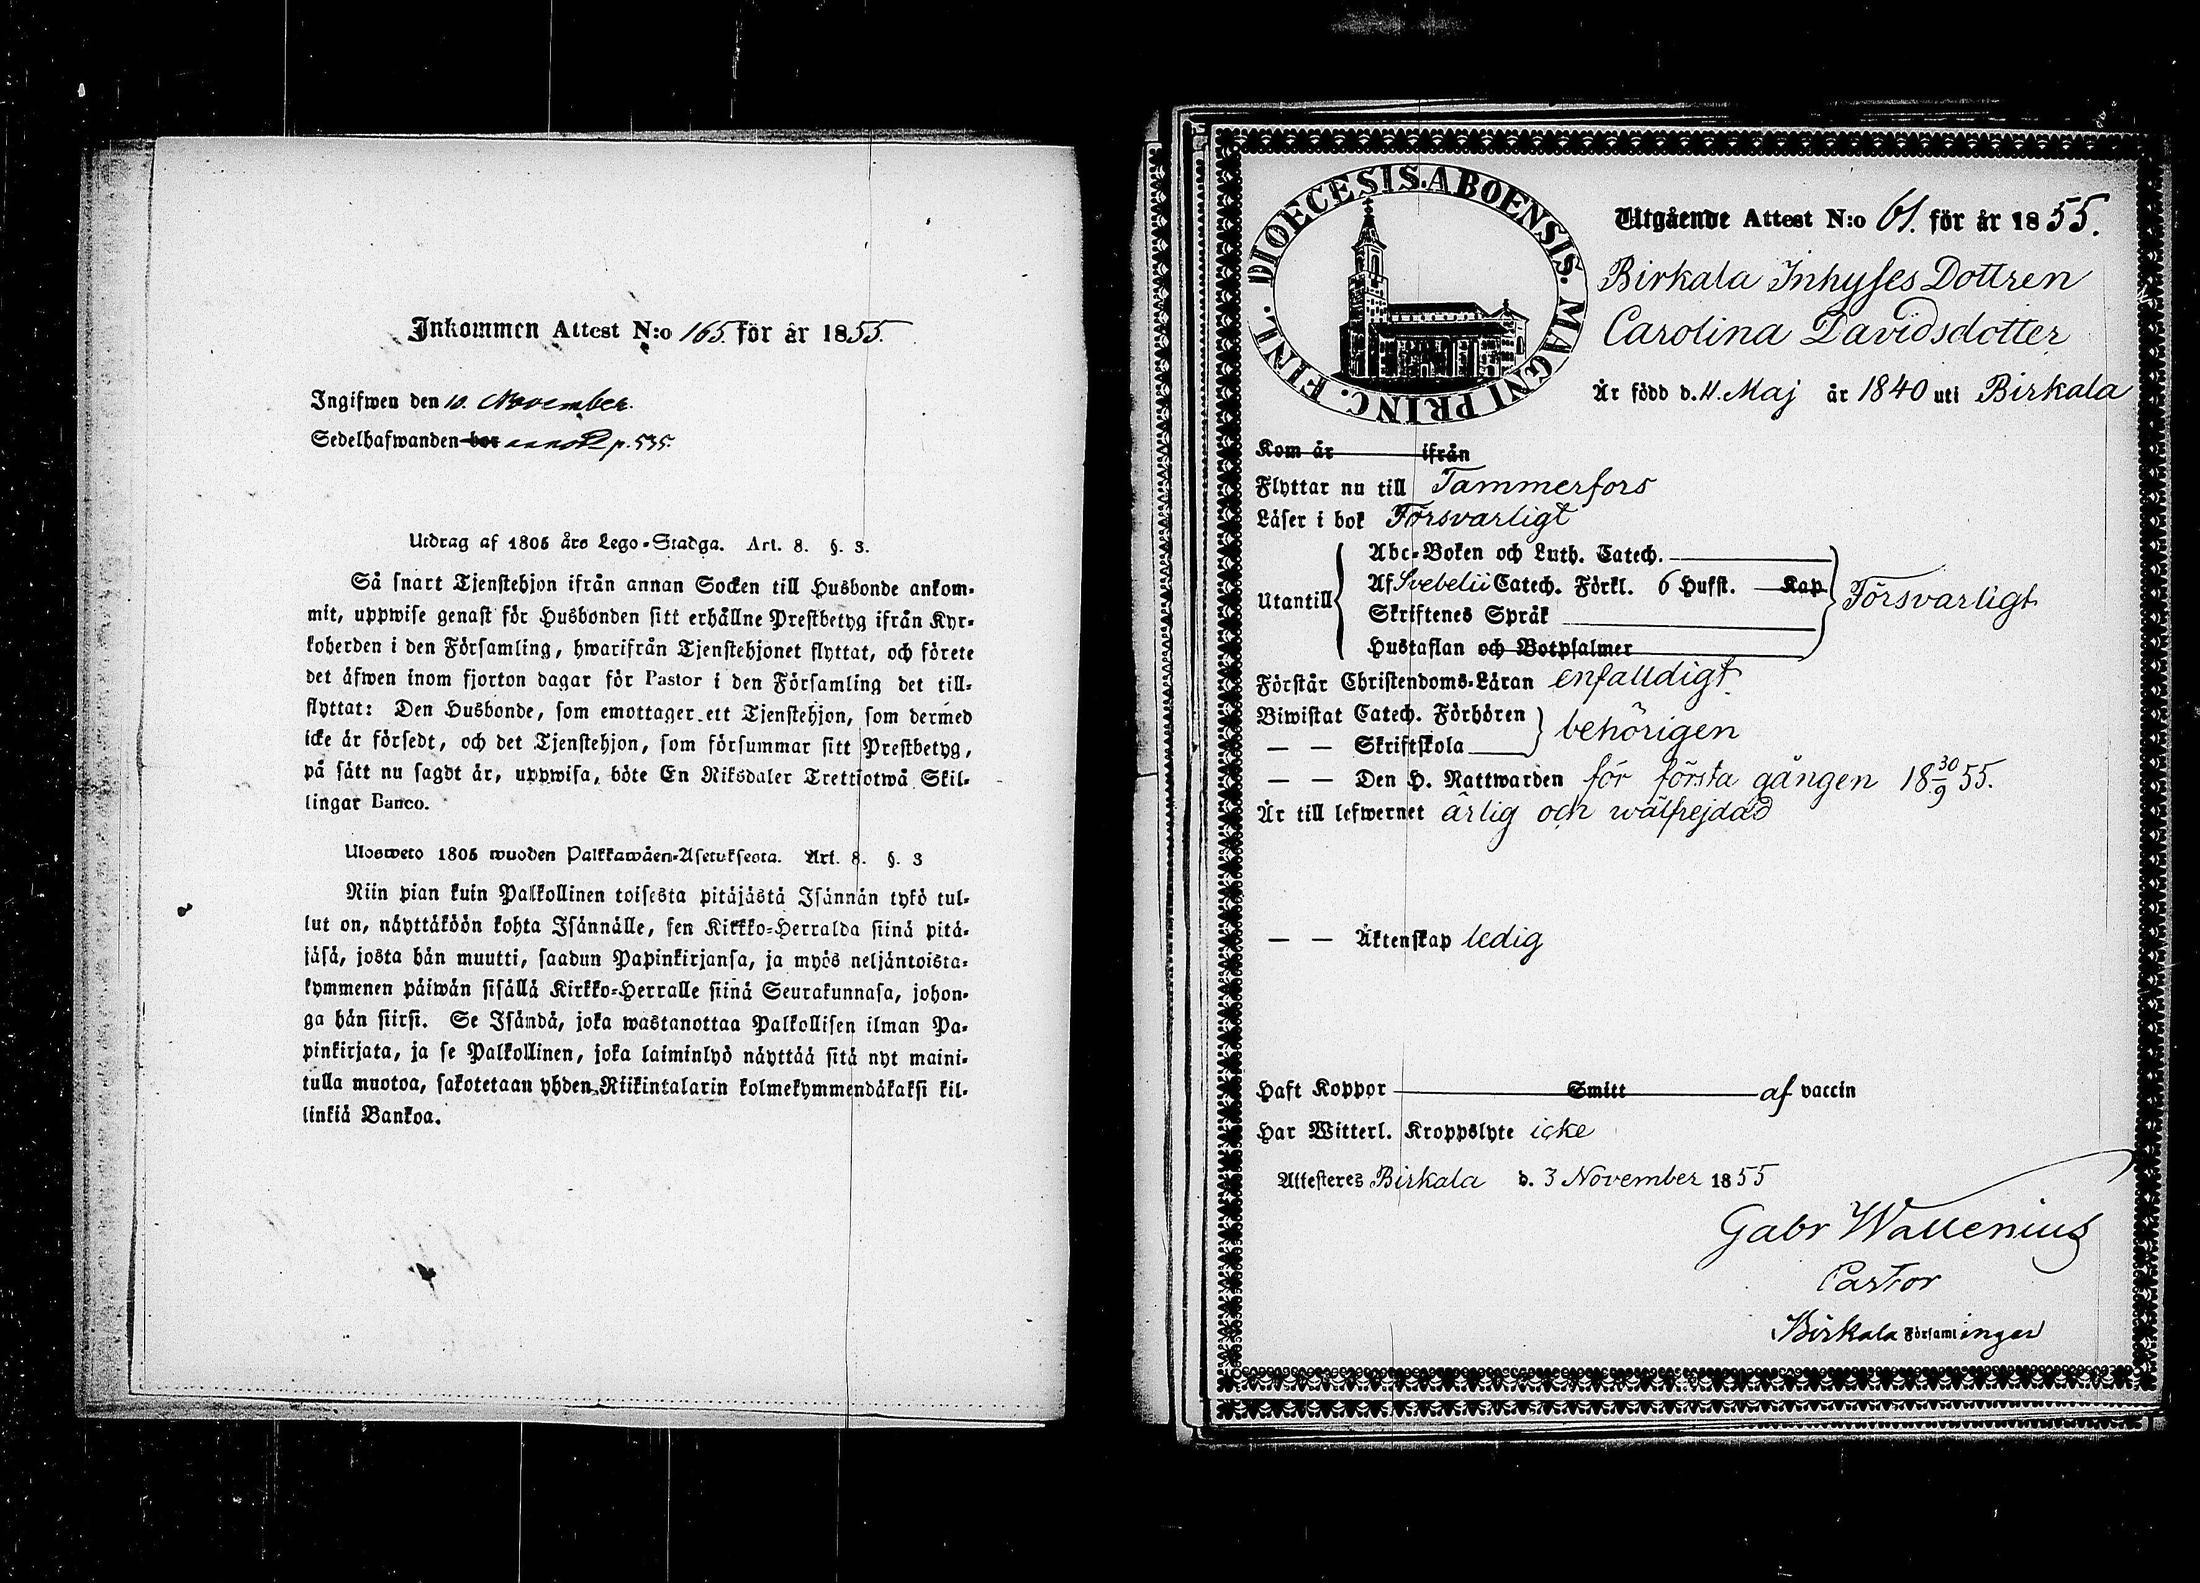 Inkommen Attest N:o 165. för år 1855.
Ingifwen den 10. November.
Sedelhafwanden bor p. 535.
Utdrag af 1805 års Lego-Stadga. Art. 8. §. 3.
Så snart Tjenstehjon ifrån annan Socken till Husbonde ankom-
mit, uppwise genast för Husbonden sitt erhållne Prestbetyg ifrån Kyr-
koherden i den Församling, hwarifrån Tjenstehjonet flyttat, och förete
det äfwen inom fjorton dagar för Pastor i den Församling det till-
flyttat: Den Husbonde, som emottager ett Tjenstehjon, som dermed
icke är försedt, och det Tjenstehjon, som försummar sitt Prestbetyg,
på sätt nu sagdt är, uppwisa, böte En Riksdaler Trettiotwå Skil-
lingar Banco.
Ulosweto 1805 wuoden Palkkawäen-Asetuksesta. Art. 8. §. 3
Niin pian kuin Palkollinen toisesta pitäjästä Isännän tykö tul-
lut on, näyttäköön kohta Isännälle, sen Kirkko-Herralda siinä pitä-
jäsä, josta hän muutti, saadun Papinkirjansa, ja myös neljäntoista-
kymmenen päiwän sisällä Kirkko-Herralle siinä Seurakunnasa, johon-
ga hän siirsi. Se Isändä, joka wastanottaa Palkollisen ilman Pa-
pinkirjata, ja se Palkollinen, joka laiminlyö näyttää sitä nyt maini-
tulla muotoa, sakotetaan yhden Riikintalarin kolmekymmendäkaksi kil-
linkiä Bankoa.
DIOECESIS. ABOENSIS. MAGNI PRINC. FINL.
Utgående Attest N:o 61. för år 1855.
Birkala Inhyses Dottren
Carolina Davidsdotter
Är född d. 11. Maj år 1840 uti Birkala
Kom år ifrån
Flyttar nu till Tammerfors
Läser i bok Försvarligt
Utantill
Abc-Boken och Luth. Catech.
Af Svebelii Catech. Förkl. 6 Hufst. Kap
Skriftenes Språk
Hustaflan och Botpsalmer
Försvarligt
Förstår Christendoms-Läran enfalldigt
Biwistat Catech. Förhören
— — Skriftskola
behörigen
— — Den H. Nattwarden för första gången 18 30/9 55.
Är till lefwernet ärlig och wälfrejdad
— — Äktenskap ledig
Haft Koppor Smitt af vaccin
Har Witterl. Kroppslyte icke
Attesteras Birkala d. 3 November 1855
Gabr Wallenius
Pastor
Birkala Församlingar